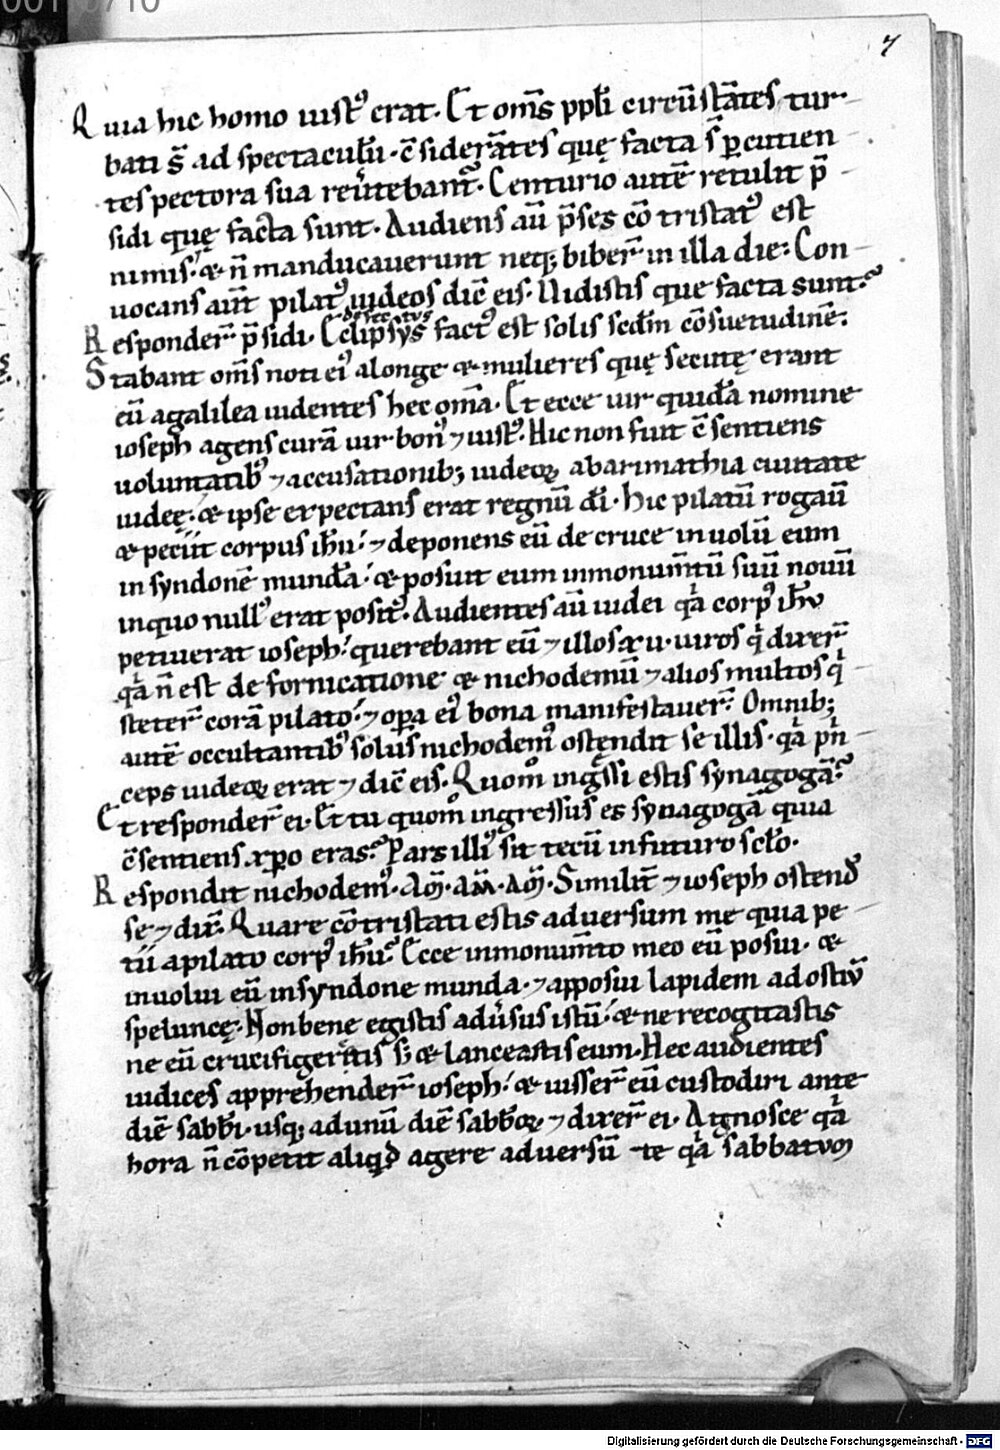 7
Quia hic homo iustꝰ erat. Et om̄s ppl̄i circūstātes tur-
bati s̄ ad spectaculū. c̄siderātes quę facta s̄ ꝑcutien
tes pectora sua reūtebant̄. Centurio autē retulit p̄-
sidi quę facta sunt. Audiens aū p̄ses cōtristatꝰ est
nimis. & n̄ manducauerunt neq; biber̄ in illa die. Con-
uocans aūt pilatꝰ iudeos dic̄ eis. Uidistis que facta sunt?
defectus
Responder̄ p̄sidi. Eclipsys factꝰ est solis scdm̄ cōsuetudinē.
Stabant om̄s noti eiꝰ alonge & mulieres quę secutę erant
eū agalilea uidentes hec om̄a. Et ecce uir quidā nomine
ioseph agens curā uir bonꝰ ⁊ iustꝰ. Hic non fuit c̄sentiens
uoluntatibꝰ ⁊ accusationib; iudeoꝝ abarimathia ciuitate
iudeę. & ipse expectans erat regnū dī. hic pilatū rogaū
& peciit corpus ihū. ⁊ deponens eū de cruce inuolū eum
in syndonē mundā. & posuit eum inmonum̄tū suū nouū
inquo nullꝰ erat positꝰ. Audientes aū iudei qa corpꝰ ihu
petiuerat ioseph. querebant eū ⁊ illos xii uiros q dixer̄
qa n̄ est de fornicatione & nichodemū ⁊ alios multos q-
steter̄ corā pilato. ⁊ oꝑa eiꝰ bona manifestauer̄. Omnib;
autē occultantibꝰ solus nichodemꝰ ostendit se illis. qa pn-
ceps iudeoꝝ erat ⁊ dic̄ eis. Quom̊ ingssi estis synagogā?
Et responder̄ ei. Et tu quom̊ ingressus es synagogā quia
c̄sentiens xp̄o eras? Pars illiꝰ sit tecū infuturo sclo.
Respondit nichodemꝰ. Am̄. am̄. am̄. Similit̄ ⁊ ioseph ostend
se ⁊ dix̄. Quare cōtristati estis aduersum me quia pe-
tii apilato corpꝰ ihū? Ecce inmonum̄to meo eū posui. &
inuolui eū insyndone munda. ⁊ apposui lapidem adostiū
speluncę. Non bene egistis adūsus istū. & ne recogitastis
ne eū crucifigeritis s; & lanceastis eum. Hec audientes
iudices apprehender̄ ioseph. & iusser̄ eū custodiri ante
diē sabbi. usq; adunū diē sabboꝝ ⁊ dixer̄ ei. Agnosce qa
hora n̄ cōpetit aliqd agere aduersū te qa sabbatum
Digitalisierung gefördert durch die Deutsche Forschungsgemeinschaft - DFG